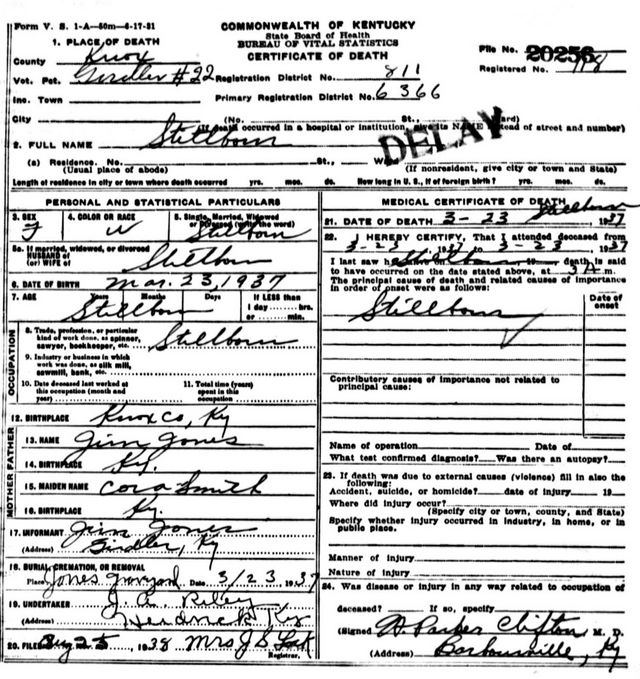 Form V. S. 1-A—50m—6-17-31
COMMONWEALTH OF KENTUCKY
State Board of Health
BUREAU OF VITAL STATISTICS
CERTIFICATE OF DEATH
File No. 20256
Registered No. 918
1. PLACE OF DEATH
County Knox
Vot. Pct. Girdler #22 Registration District No. 811
Inc. Town Primary Registration District No. 6366
City (No. St., Ward)
(If death occurred in a hospital or institution, give its NAME instead of street and number)
DELAY
2. FULL NAME Stillborn
(a) Residence. No. St., W
(Usual place of abode) (If nonresident, give city or town and State)
Length of residence in city or town where death occurred yrs. mos. ds. How long in U. S., if of foreign birth? yrs. mos. ds.
PERSONAL AND STATISTICAL PARTICULARS
3. SEX F
4. COLOR OR RACE W
5. Single, Married, Widowed or Divorced (write the word) Stillborn
5a. If married, widowed, or divorced
HUSBAND of
(or) WIFE of Stillborn
6. DATE OF BIRTH Mar. 23, 1937
7. AGE Years Months Days If LESS than
1 day hrs.
or min.
Stillborn
OCCUPATION
8. Trade, profession, or particular
kind of work done, as spinner,
sawyer, bookkeeper, etc. Stillborn
9. Industry or business in which
work was done, as silk mill,
sawmill, bank, etc.
10. Date deceased last worked at
this occupation (month and
year)
11. Total time (years)
spent in this
occupation
12. BIRTHPLACE Knox Co, Ky
FATHER
13. NAME Jim Jones
14. BIRTHPLACE Ky.
MOTHER
15. MAIDEN NAME Cora Smith
16. BIRTHPLACE Ky.
17. INFORMANT Jim Jones
(Address) Girdler, Ky
18. BURIAL, CREMATION, OR REMOVAL
Place Jones Graveyard Date 3/23 1937
19. UNDERTAKER J. A. Riley
Hendrick Ky
20. FILED Aug 25 1938 Mrs J S Lock
Registrar.
MEDICAL CERTIFICATE OF DEATH
21. DATE OF DEATH 3-23 Stillborn 1937
22. I HEREBY CERTIFY, That I attended deceased from
3-23 1937 to 3-23 1937
I last saw h Stillborn, 19 death is said
to have occurred on the date stated above, at 3 A m.
The principal cause of death and related causes of importance
in order of onset were as follows:
Date of
onset
Stillborn
Contributory causes of importance not related to
principal cause:
Name of operation Date of
What test confirmed diagnosis? Was there an autopsy?
23. If death was due to external causes (violence) fill in also the
following:
Accident, suicide, or homicide? date of injury 19
Where did injury occur?
(Specify city or town, county, and State)
Specify whether injury occurred in industry, in home, or in
public place.
Manner of injury
Nature of injury
24. Was disease or injury in any way related to occupation of
deceased? If so, specify
(Signed) W. Parker Clifton, M. D.
(Address) Barbourville, Ky